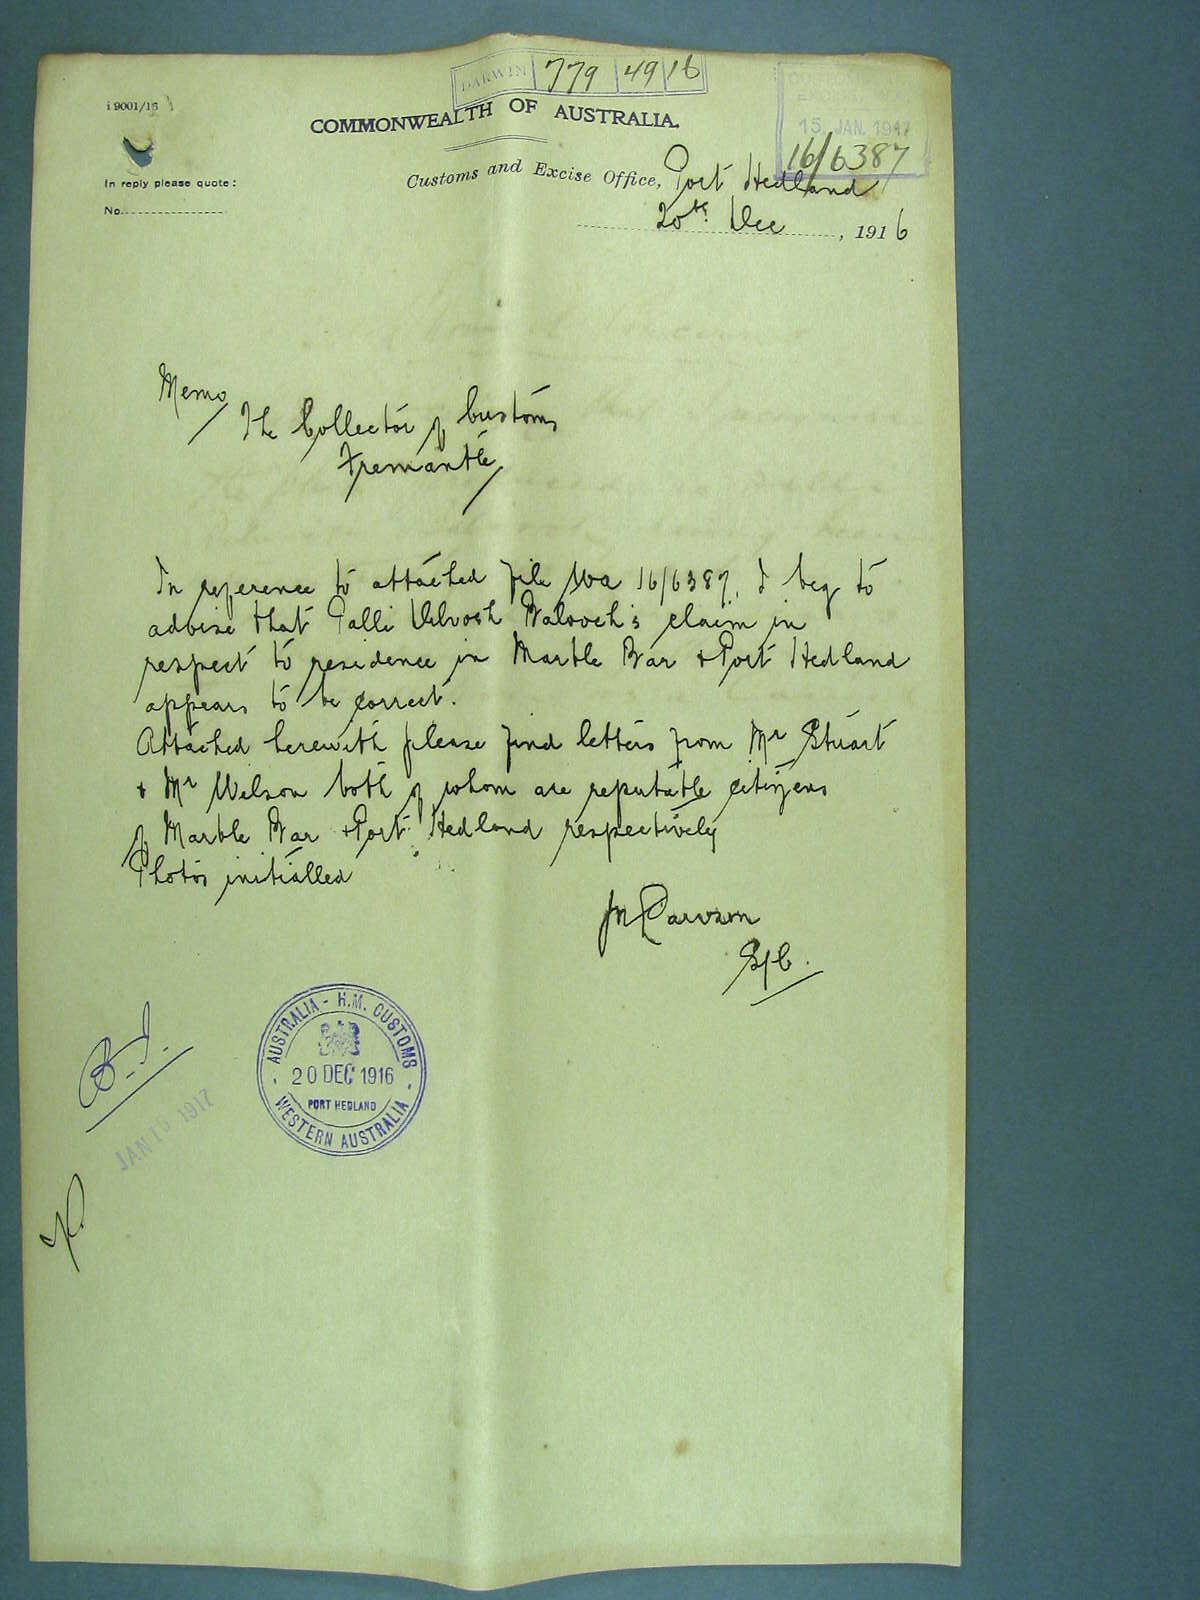 DARWIN 779 49 16
i 9001/16
COMMONWEALTH OF AUSTRALIA.
15 JAN. 1917
16/6387
In reply please quote:
No.
Customs and Excise Office, Port Hedland
20th Dec, 1916
Memo
The Collector of Customs
Fremantle
In reference to attached file wa 16/6387, I beg to
advise that Palli Balooch's claim in
respect to residence in Marble Bar & Port Hedland
appears to be correct.
Attached herewith please find letters from Mr Stuart
& Mr Wilson both of whom are reputable citizens
of Marble Bar & Port Hedland respectively
Photos initialled
S/C.
B.I.
JAN 15 1917
AUSTRALIA - H.M. CUSTOMS
20 DEC 1916
PORT HEDLAND
WESTERN AUSTRALIA